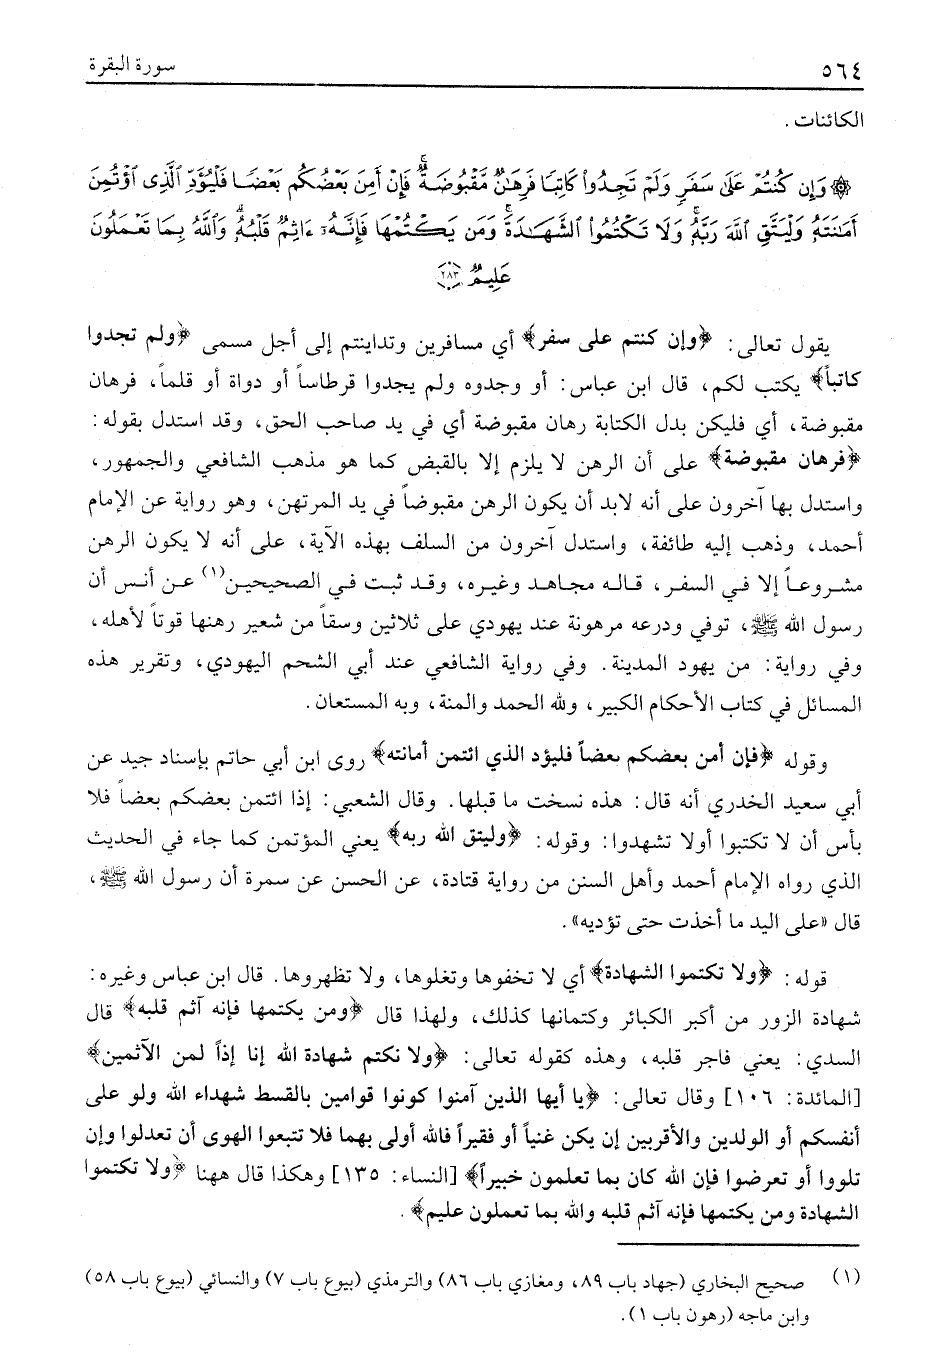 ٥٦٤ سورة البقرة
الكائنات .
۞ وَإِن كُنتُمْ عَلَىٰ سَفَرٍ وَلَمْ تَجِدُوا۟ كَاتِبًا فَرِهَٰنٌ مَّقْبُوضَةٌ ۖ فَإِنْ أَمِنَ بَعْضُكُم بَعْضًا فَلْيُؤَدِّ ٱلَّذِى ٱؤْتُمِنَ
أَمَٰنَتَهُۥ وَلْيَتَّقِ ٱللَّهَ رَبَّهُۥ ۗ وَلَا تَكْتُمُوا۟ ٱلشَّهَٰدَةَ ۚ وَمَن يَكْتُمْهَا فَإِنَّهُۥٓ ءَاثِمٌ قَلْبُهُۥ ۗ وَٱللَّهُ بِمَا تَعْمَلُونَ
عَلِيمٌ ٢٨٣
يقول تعالى: ﴿وإن كنتم على سفر﴾ أي مسافرين وتداينتم إلى أجل مسمى ﴿ولم تجدوا
كاتباً﴾ يكتب لكم، قال ابن عباس: أو وجدوه ولم يجدوا قرطاساً أو دواة أو قلماً، فرهان
مقبوضة، أي فليكن بدل الكتابة رهان مقبوضة أي في يد صاحب الحق، وقد استدل بقوله:
﴿فرهان مقبوضة﴾ على أن الرهن لا يلزم إلا بالقبض كما هو مذهب الشافعي والجمهور،
واستدل بها آخرون على أنه لابد أن يكون الرهن مقبوضاً في يد المرتهن، وهو رواية عن الإمام
أحمد، وذهب إليه طائفة، واستدل آخرون من السلف بهذه الآية، على أنه لا يكون الرهن
مشروعاً إلا في السفر، قاله مجاهد وغيره، وقد ثبت في الصحيحين(١) عن أنس أن
رسول الله ﷺ، توفي ودرعه مرهونة عند يهودي على ثلاثين وسقاً من شعير رهنها قوتاً لأهله،
وفي رواية: من يهود المدينة. وفي رواية الشافعي عند أبي الشحم اليهودي، وتقرير هذه
المسائل في كتاب الأحكام الكبير، ولله الحمد والمنة، وبه المستعان.
وقوله ﴿فإن أمن بعضكم بعضاً فليؤد الذي ائتمن أمانته﴾ روى ابن أبي حاتم بإسناد جيد عن
أبي سعيد الخدري أنه قال: هذه نسخت ما قبلها. وقال الشعبي: إذا ائتمن بعضكم بعضاً فلا
بأس أن لا تكتبوا أولا تشهدوا: وقوله: ﴿وليتق الله ربه﴾ يعني المؤتمن كما جاء في الحديث
الذي رواه الإمام أحمد وأهل السنن من رواية قتادة، عن الحسن عن سمرة أن رسول الله ﷺ،
قال «على اليد ما أخذت حتى تؤديه».
قوله: ﴿ولا تكتموا الشهادة﴾ أي لا تخفوها وتغلوها، ولا تظهروها. قال ابن عباس وغيره:
شهادة الزور من أكبر الكبائر وكتمانها كذلك، ولهذا قال ﴿ومن يكتمها فإنه آثم قلبه﴾ قال
السدي: يعني فاجر قلبه، وهذه كقوله تعالى: ﴿ولا نكتم شهادة الله إنا إذاً لمن الآثمين﴾
[المائدة: ١٠٦] وقال تعالى: ﴿يا أيها الذين آمنوا كونوا قوامين بالقسط شهداء الله ولو على
أنفسكم أو الولدين والأقربين إن يكن غنياً أو فقيراً فالله أولى بهما فلا تتبعوا الهوى أن تعدلوا وإن
تلووا أو تعرضوا فإن الله كان بما تعلمون خبيراً﴾ [النساء: ١٣٥] وهكذا قال ههنا ﴿ولا تكتموا
الشهادة ومن يكتمها فإنه آثم قلبه والله بما تعملون عليم﴾.
(١) صحيح البخاري (جهاد باب ٨٩، ومغازي باب ٨٦) والترمذي (بيوع باب ٧) والنسائي (بيوع باب ٥٨)
وابن ماجه (رهون باب ١).